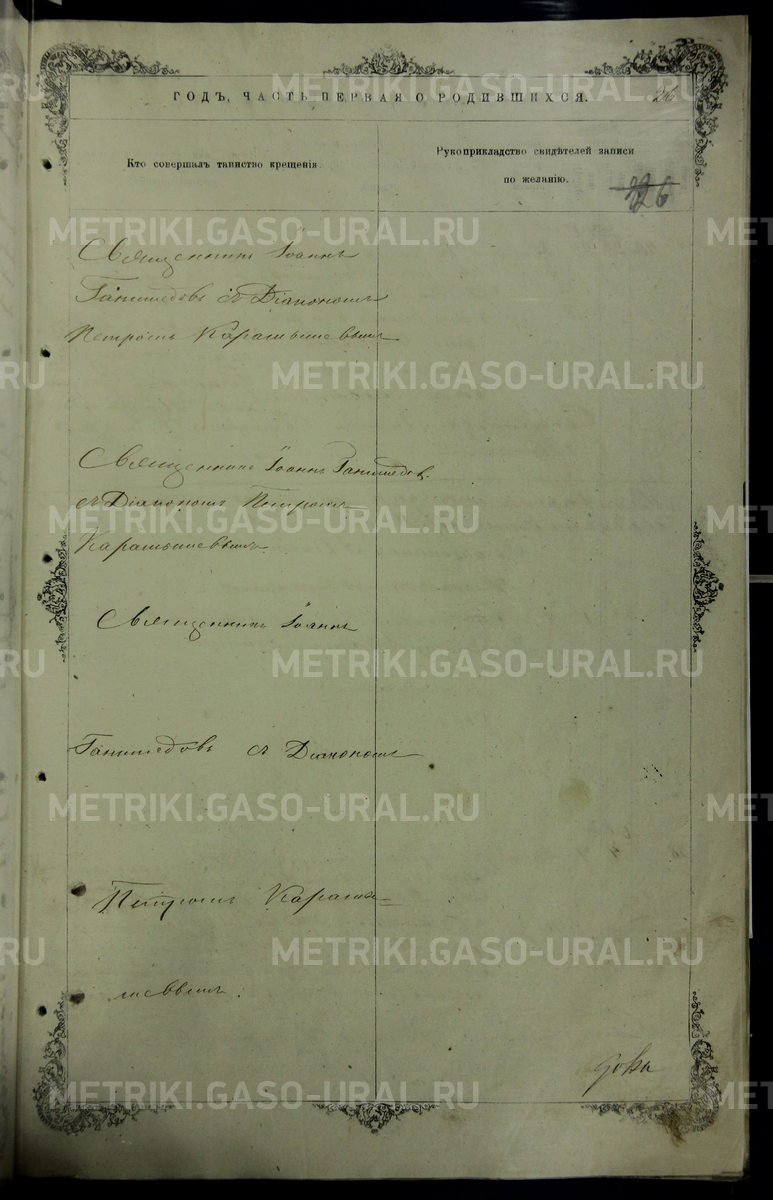 ГОДЪ, ЧАСТЬ ПЕРВАЯ О РОДИВШИХСЯ.
26
Кто совершалъ таинство крещенія.
Рукоприкладство свидѣтелей записи
по желанію.
Священникъ Іоаннъ
съ Діакономъ
Петромъ Карамышевымъ
Священникъ Іоаннъ
съ Діакономъ Петромъ
Карамышевымъ
Священникъ Іоаннъ
съ Діакономъ
Петромъ Карамы=
шевымъ.
METRIKI.GASO-URAL.RU